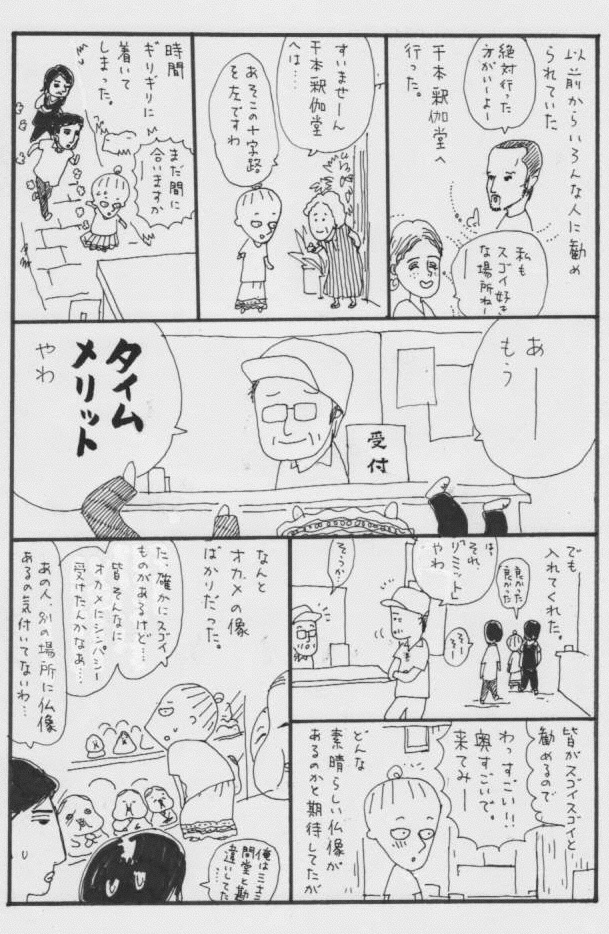 以前からいろんな人に勧め
られていた
絶対行った
方がいいよー
私も
スゴイ好き
な場所ねー
千本釈迦堂へ
行った。
すいませーん
千本釈迦堂
へは…
あそこの十字路
を左ですわ
時間
ギリギリに
着いて
しまった。
まだ間に
合いますか
あー
もう
受付
タイム
メリット
やわ
でも
入れてくれた。
良かった
良かった
そーそー
は、
それ、
「リミット」
やわ
そうか?
皆がスゴイスゴイと
勧めるので
わっすごい!!
奥すごいで。
来てみー
どんな
素晴らしい仏像が
あるのかと期待してたが
なんと
オカメの像
ばかりだった。
た、確かにスゴイ
ものがあるけど…
皆そんなに
オカメにシンパシー
受けたんかなあ…
俺は三十三
間堂と勘
違いしてた
…
あの人、別の場所に仏像
あるの気付いてないわ…